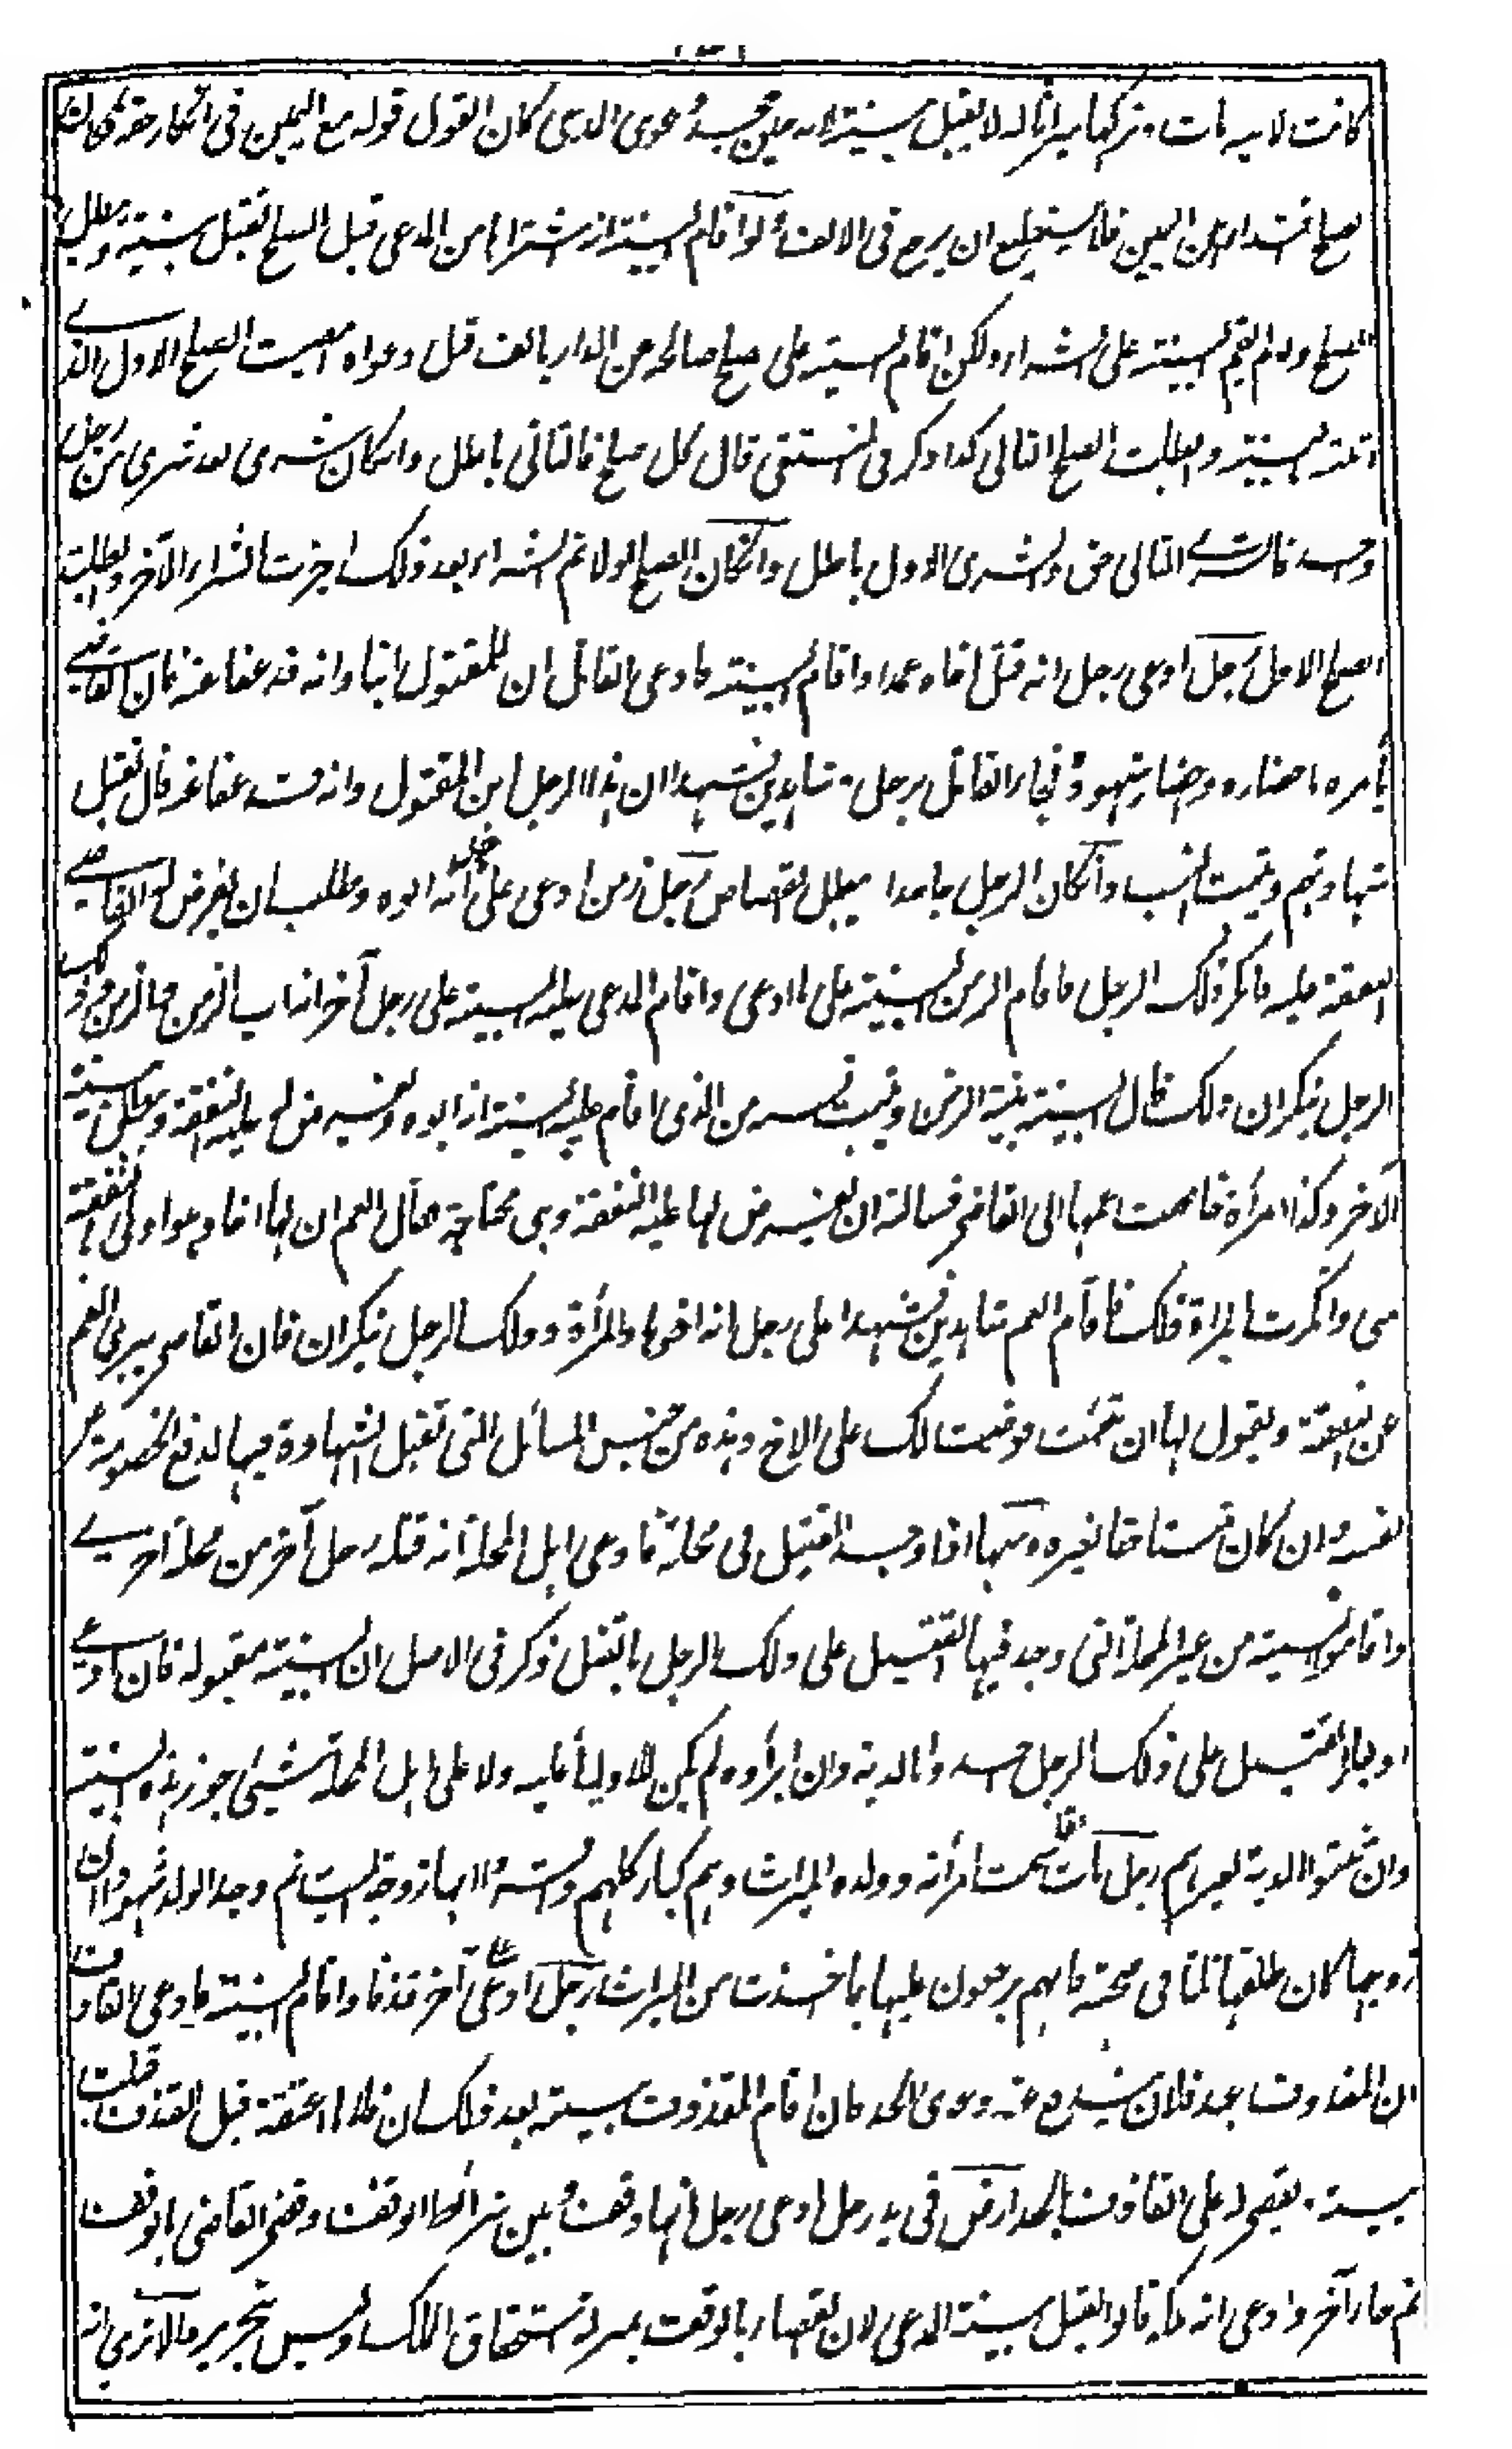 كانت لابيه مات وتركها ميراثا له لا يقبل بينته لانه حين جحد دعوى المدعى كان القول قوله مع اليمين فى انكار حقه فكان
الصلح افتداء عن اليمين فلا يستطيع ان يرجع فى الالف ولو اقام البينة انه اشتراها من المدعى قبل الصلح تقبل بينته ويبطل
الصلح ولو لم يقم البينة على الشراء ولكن اقام البينة على صلح صالحه من الدار بالف قبل دعواه امضيت الصلح الاول الذى
اثبته بالبينة وابطلت الصلح الثانى كذا ذكر فى المنتقى قال كل صلح فالثانى باطل وان كان شرى بعد شرى من رجل
واحد فالشرى الثانى حق والشرى الاول باطل وان كان الصلح اولا ثم الشراء بعد ذلك اجزت الشراء الآخر وابطلت
الصلح الاول رجل ادعى رجل انه قتل اخاه عمدا واقام البينة فادعى القاتل ان للمقتول ابنا وانه قد عفا عنه فان القاضى
يأمره باحضاره واحضار شهوده فجاء القاتل برجل وشاهدين فشهدا ان هذا الرجل ابن المقتول وانه قد عفا عنه قال تقبل
شهادتهم ويثبت النسب وان كان الرجل جاحدا يبطل القصاص رجل زمن ادعى على رجل انه ابوه وطلب ان يفرض له القاضى
النفقة عليه فانكر ذلك الرجل فاقام الزمن البينة على ما ادعى واقام المدعى عليه البينة على رجل آخر انه اب الزمن والزمن وذلك
الرجل ينكران ذلك قال البينة بينة الزمن ويثبت نسبه من الذى اقام عليه البينة انه ابوه ويفرض له عليه النفقة ويبطل بينة
الآخر وكذا امرأة خاصمت عمها الى القاضى فسألته ان يفرض لها عليه النفقة وهى محتاجة فقال العم ان لها اخا وهو اولى بالنفقة
منى وانكرت المرأة ذلك فاقام العم شاهدين فشهدا على رجل انه اخوها والمرأة وذلك الرجل ينكران فان القاضى يبرئ العم
عن النفقة ويقول لها ان شئت فرضت لك على الاخ وهذه من جنس المسائل التى تقبل الشهادة فيها لدفع الخصومة عن
نفسه وان كان مستاحقا لغيره ومنها اذا وجد القتيل فى محلة فادعى اهل المحلة انه قتله رجل آخر من محلة اخرى
واقاموا البينة من غير المحلة التى وجد فيها القتيل على ذلك الرجل بالقتل ذكر فى الاصل ان البينة مقبولة فان ادعى
اولياء القتيل على ذلك الرجل اخذوا بالدية وان ابرأوه لم يكن للاولياء عليه ولا على اهل المحلة شيئى جوز هذه البينة
وان شتوا الدية لغيرهم رجل مات فقاسمت امرأته وولده الميراث وهم كبار كلهم واقروا انها زوجة الميت ثم وجد الولد شهودا ان
زوجها كان طلقها ثلثا فى صحته فانهم يرجعون عليها بما اخذت من الميراث رجل ادعى على آخر قذفا واقام البينة فادعى القاذف
ان المقذوف عبد فلان يندفع عنه دعوى الحد فان اقام المقذوف بينة بعد ذلك ان فلانا اعتقه قبل القذف قبلت
بينته ويقضى له على القاذف بالحد ارض فى يد رجل ادعى رجل انها وقف وبين شرائط الوقف وقضى القاضى بالوقف
ثم جاء آخر وادعى انه ملكه قالوا تقبل بينة المدعى لان القضاء بالوقف بمنزلة استحقاق الملك وليس بتحرير الا ترى انه